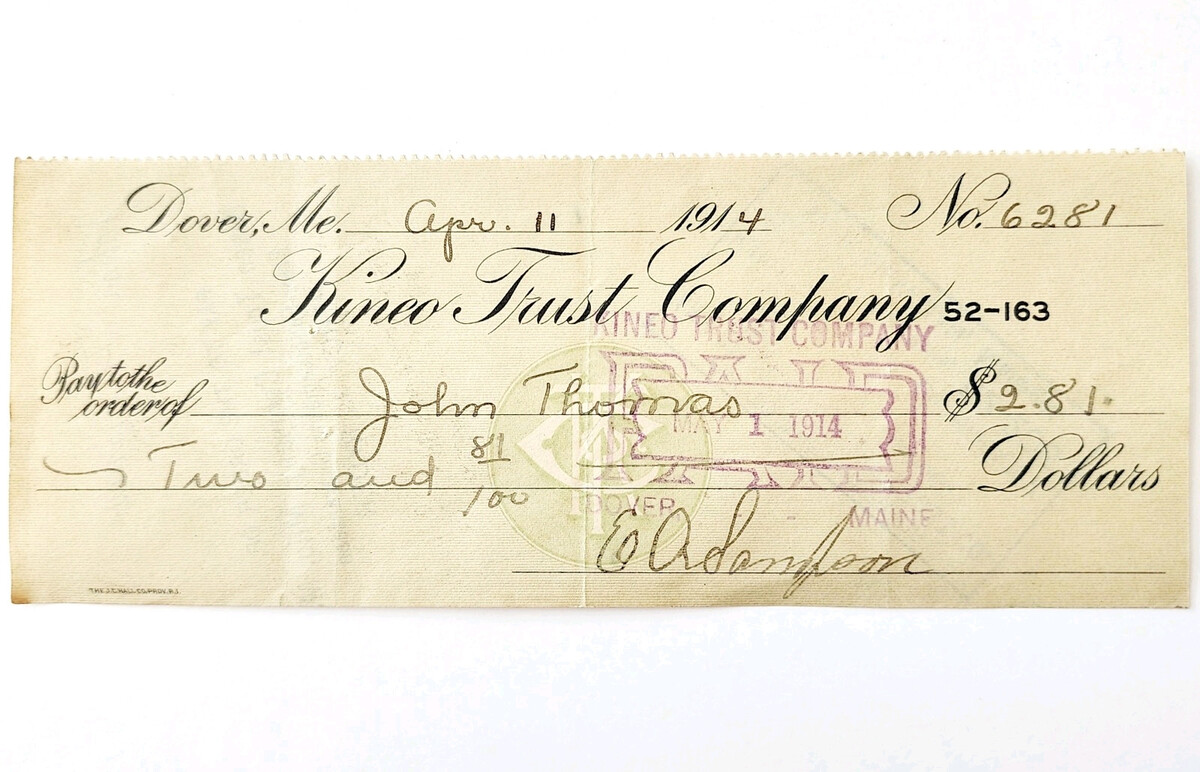 Dover, Me. Apr. 11 1914 No. 6281
Kineo Trust Company 52-163
KINEO TRUST COMPANY
Pay to the order of John Thomas $ 2.81.
PAID
MAY 1 1914
Two and 81/100 Dollars
DOVER MAINE
E A Sampson
THE J.C. HALL CO. PROV. R.I.